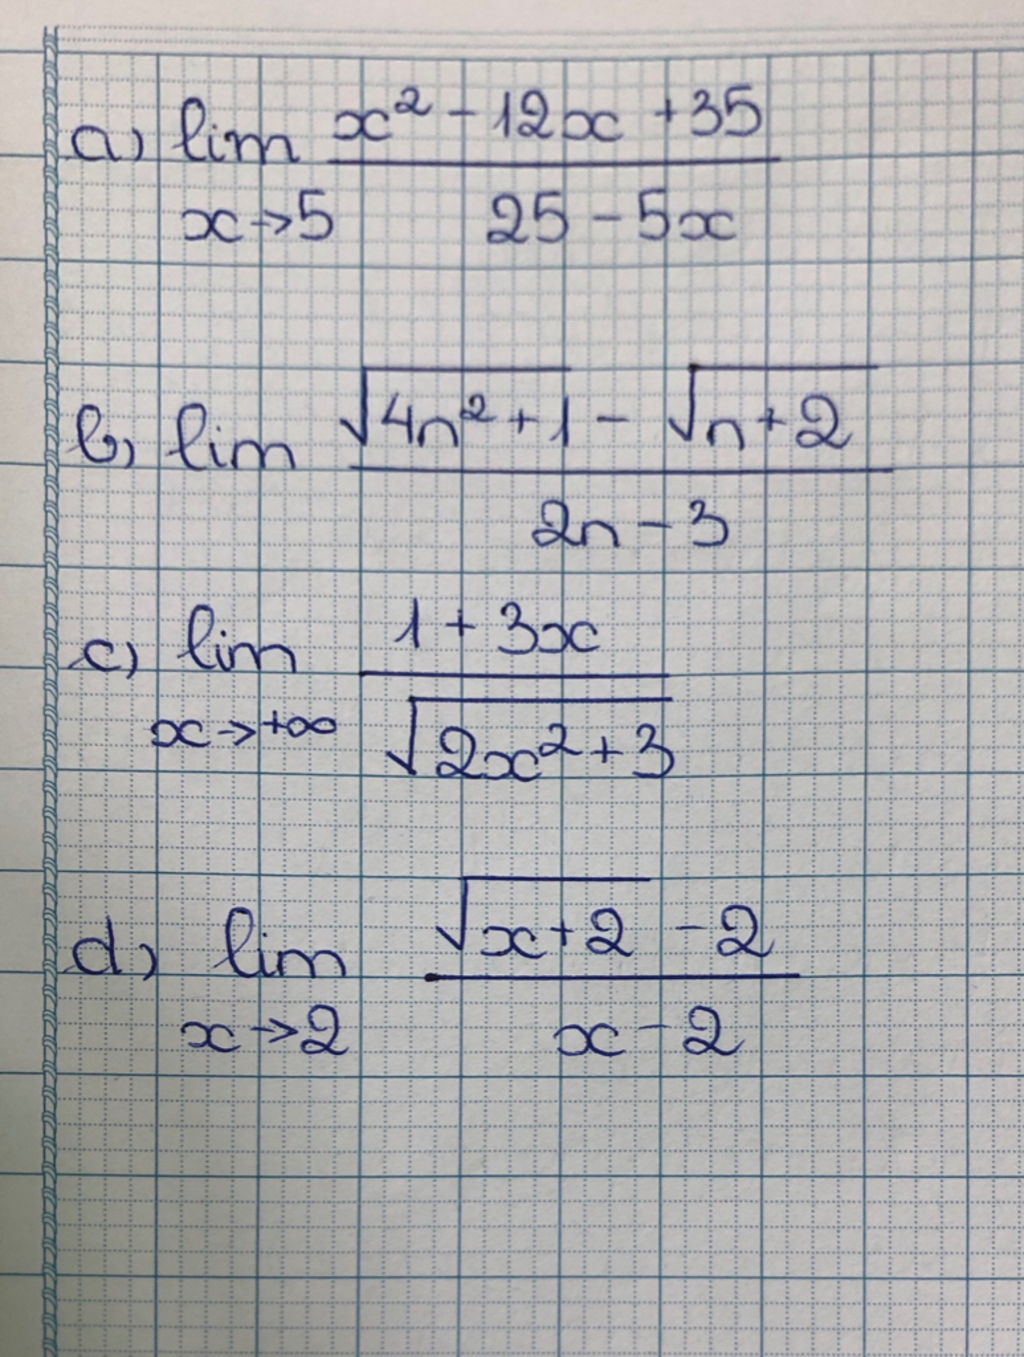 a) lim x² - 12x + 35
x→5 25 - 5x
b) lim √4n² + 1 - √n + 2
2n - 3
c) lim 1 + 3x
x→+∞ √2x² + 3
d) lim √x+2 - 2
x→2 x - 2